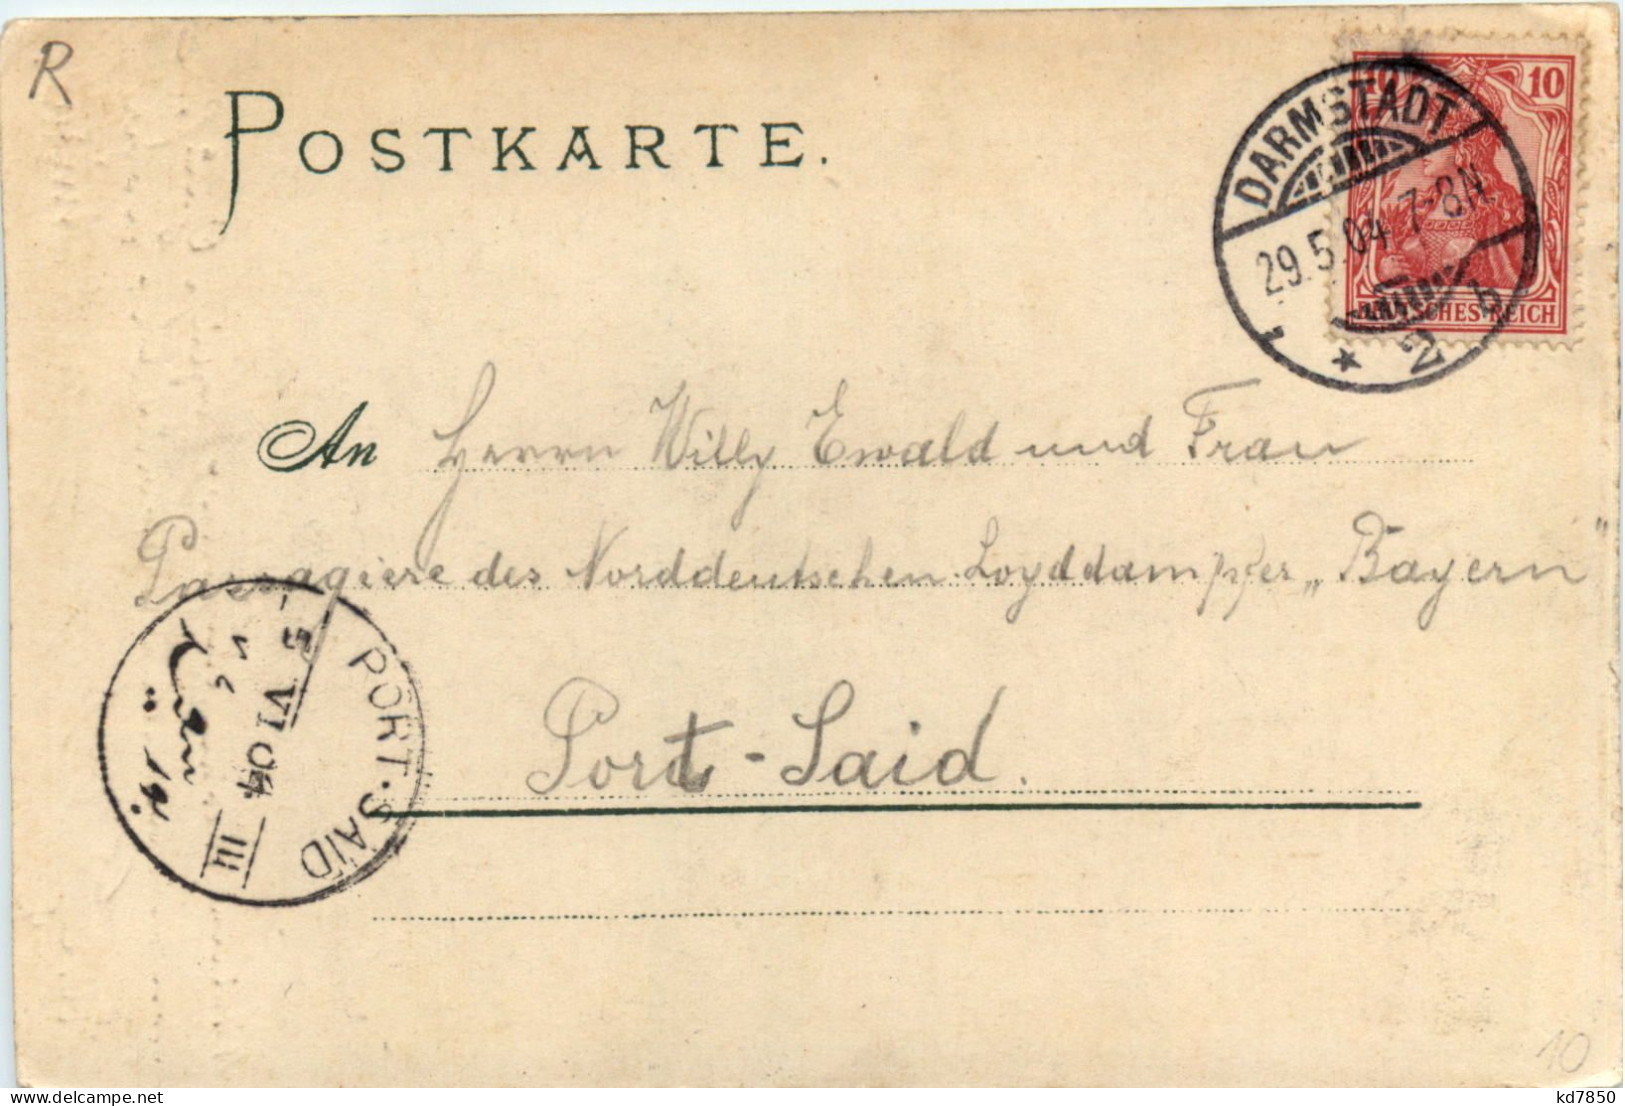 R
POSTKARTE.
10 10
DARMSTADT
29.5.04 7-8N.
* 2 b
DEUTSCHES REICH
An Herrn Willy Ewald und Frau
Passagiere des Norddeutschen Loyddampfer „Bayern"
Port-Said.
PORT-SAID
-5 VI 04
III
10
kd7850